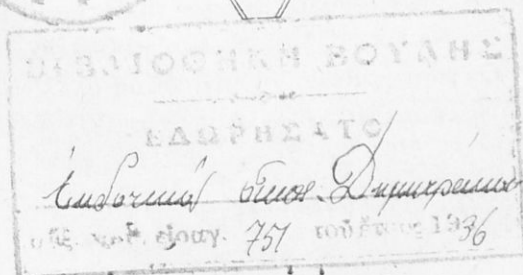 ΒΙΒΛΙΟΘΗΚΗ ΒΟΥΛΗΣ
ΕΔΩΡΗΣΑΤΟ
Ἐκδοτικὸς οἶκος Δημητράκου
αὔξ. χρθ. εἰσαγ. 751 τοῦ ἔτους 1936